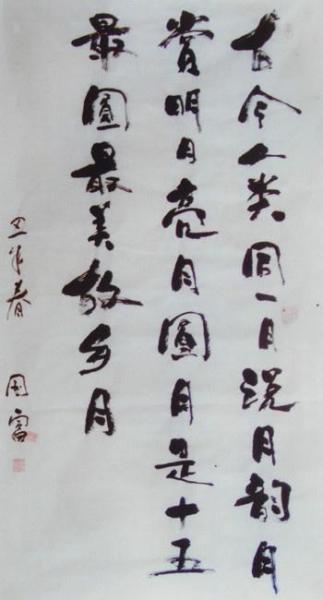 古今人类同一月说月韵月
赏明月亮月圓月是十五
最圓最美故乡月
丑年春
国富